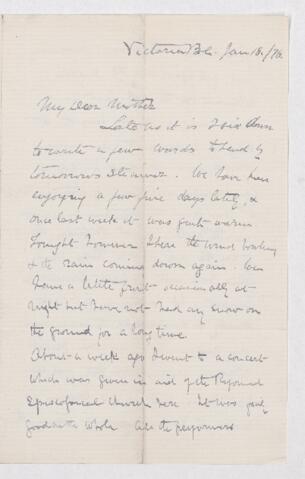 Victoria B.C. Jan 18./76.
My Dear Mother
Late as it is I sit down
to write a few words to send by
tomorrows Steamer. We have been
enjoying a few fine days lately, &
once last week it was quite warm
Tonight however I hear the wind howling
& the rain coming down again. We
have a little frost occasionally at
night but have not had any snow on
the ground for a long time.
About a week ago I went to a concert
which was given in aid of the Reformed
Episcopal Church here. It was pretty
good on the whole. All the performers